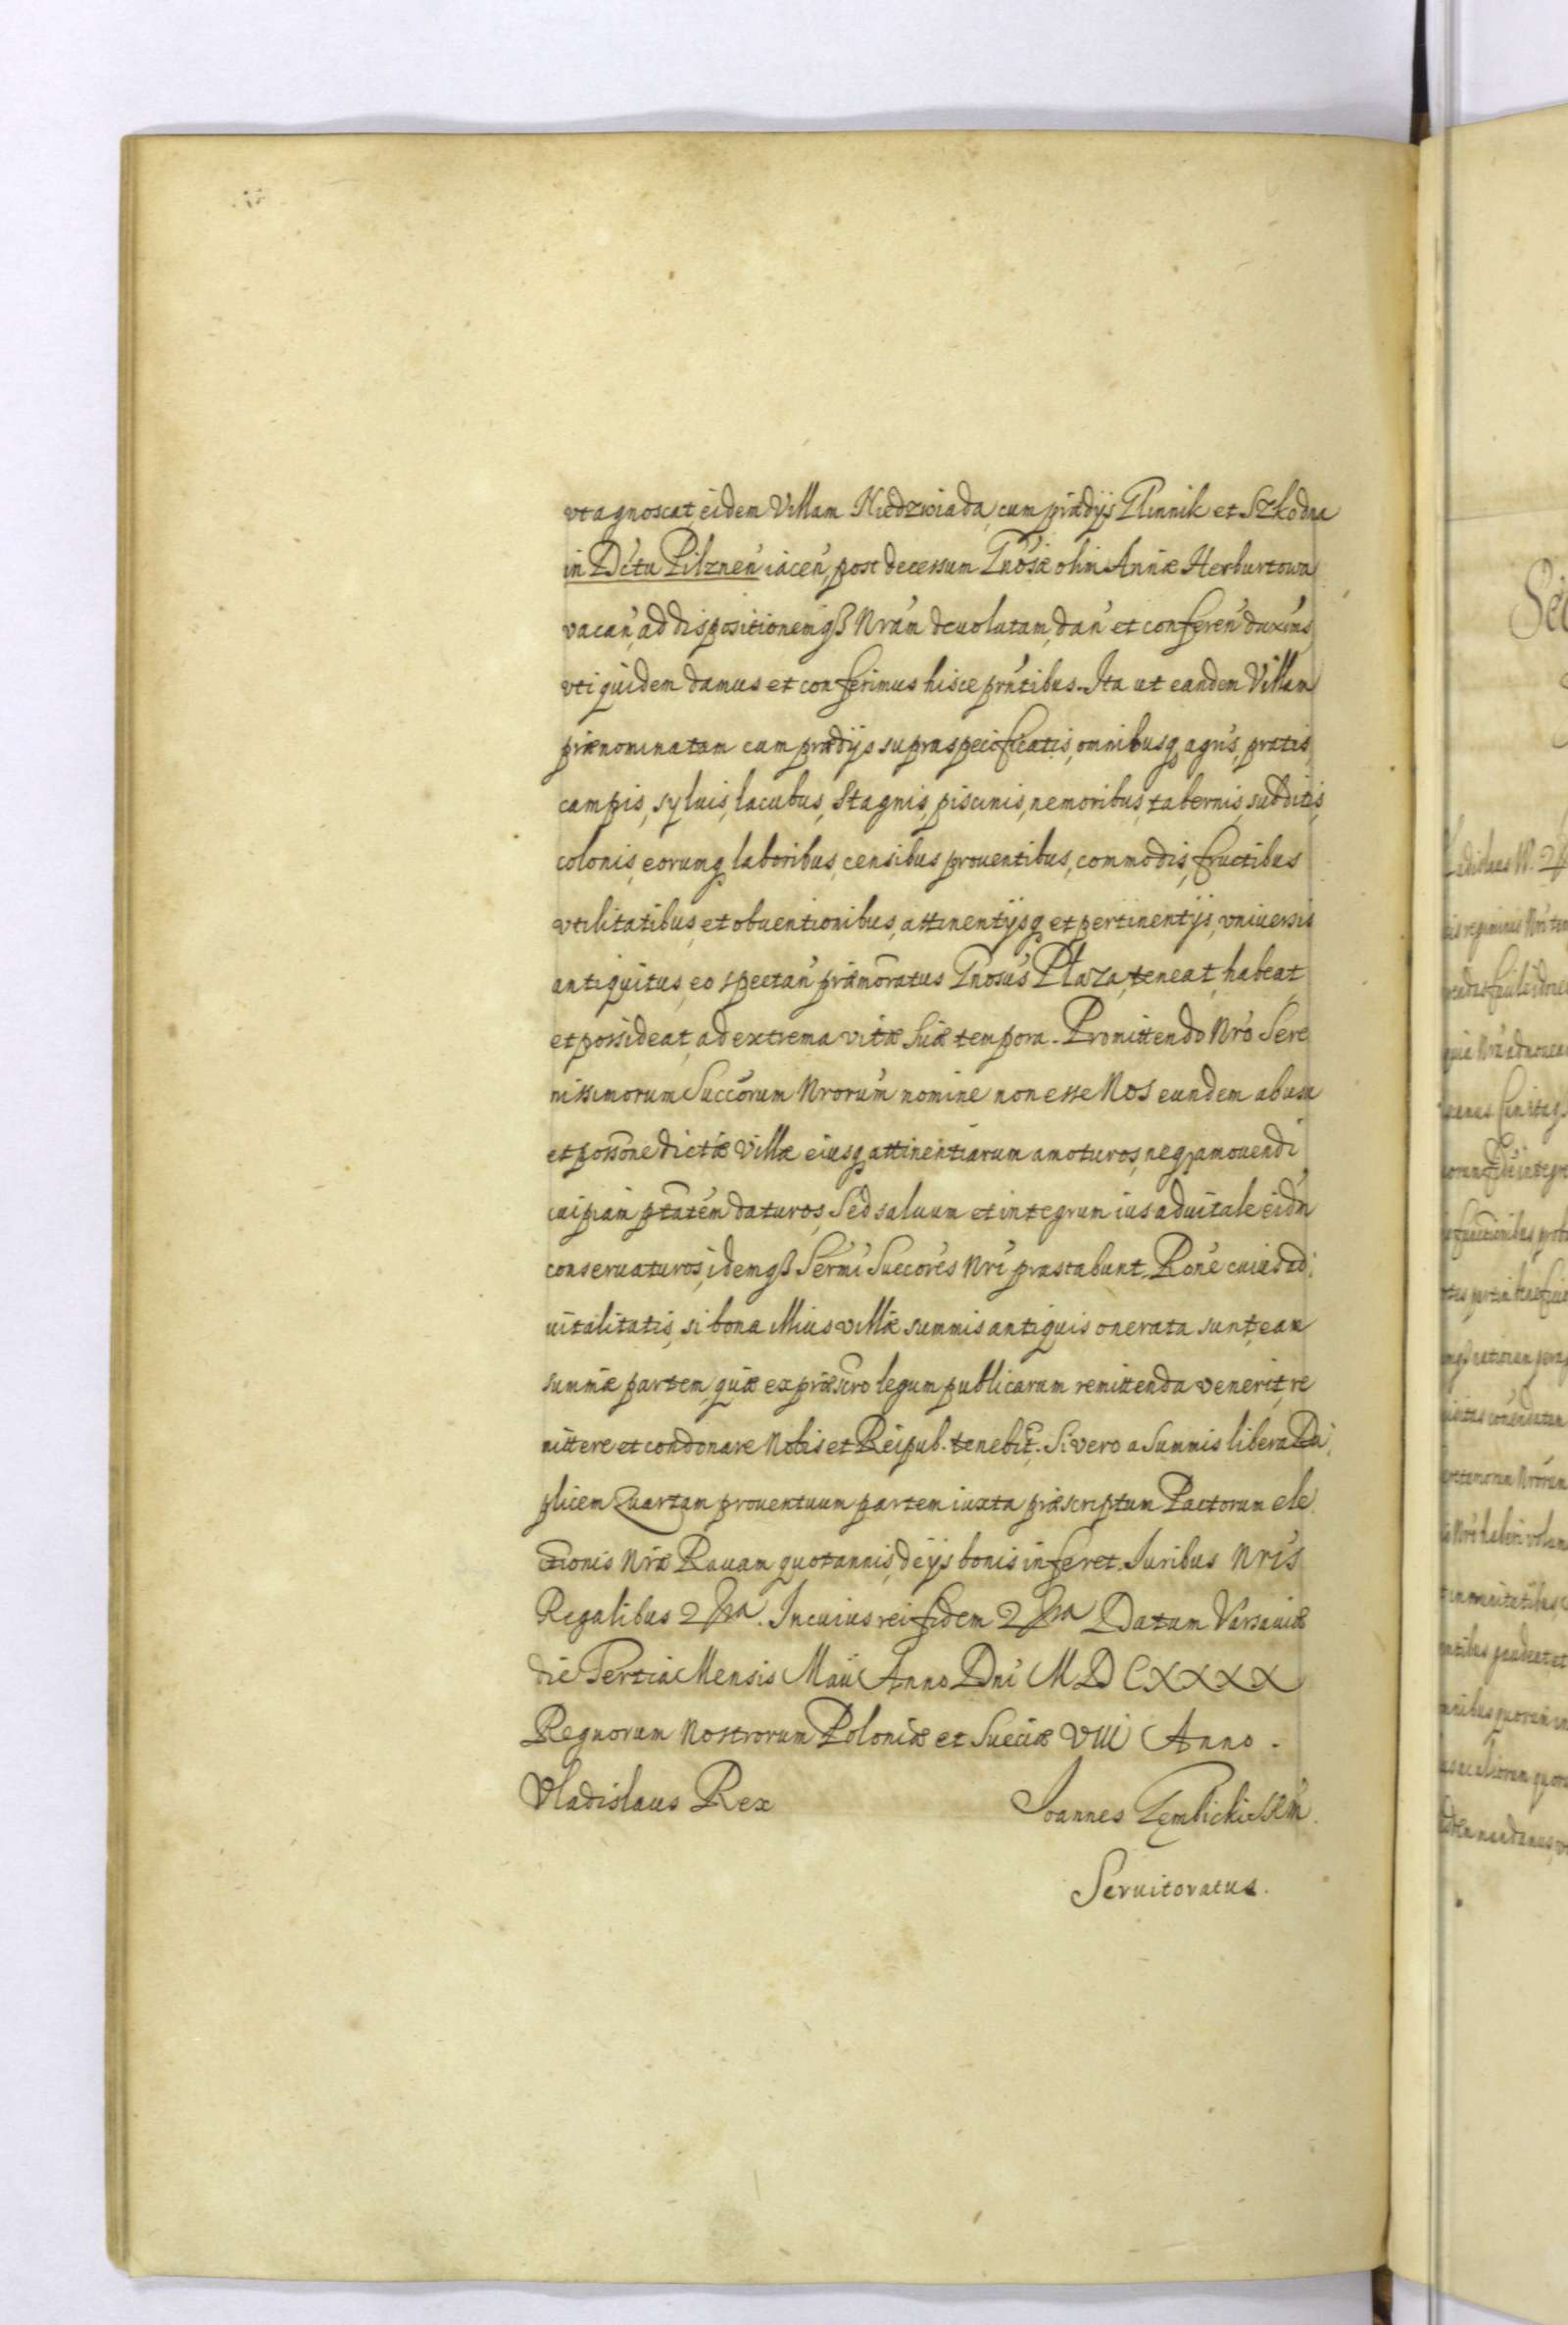 vt agnoscat, eidem Villam Niedzwiada, cum prædijs Glinnik et Szkodna
in Dctu Pilznen iacen, post decessum Gnosæ olim Annæ Herburtowa
vacan, ad dispositionemqȝ Nram deuolutam, dan et conferen duximus
vti quidem damus et conferimus hisce prntibus. Ita ut eandem Villam
prænominatam cum prædijs supraspecificatis, omnibusq agris, pratis,
campis, syluis, lacubus, Stagnis, piscinis, nemoribus, tabernis, subditis,
colonis, eorumq laboribus, censibus prouentibus, commodis, fructibus
vtilitatibus, et obuentionibus, attinentijsq et pertinentijs, vniuersis
antiquitus, eo spectan præmoratus Gnosus Plaza, teneat, habeat
et possideat, ad extrema vitæ suæ tempora. Promittendo Nro Sere
nissimorum Succorum Nrorum nomine non esse Nos eundem ab usu
et possone dictæ Villæ eiusq attinentiarum amoturos, neq amouendi
cuipiam ptatem daturos, Sed saluum et integrum ius aduitale eidm
conseruaturos, idemqȝ Sermi Succores Nri præstabunt. Rone cuius ad
uitalitatis, si bona illius villæ summis antiquis onerata sunt, eam
summæ partem, quæ ex præscro legum publicarum remittenda venerit, re
mittere et condonare Nobis et Reipub. tenebit. Si vero a Summis libera Du
plicem Quartam prouentuum partem iuxta præscriptum Pactorum ele
ctionis Nræ Rauam quotannis, de ijs bonis inferet. Juribus Nris
Regalibus . In cuius rei fidem Datum Varsauiæ
die Tertia Mensis Maii Anno Dni M D C X X X X
Regnorum Nostrorum Poloniæ et Sueciæ VIII Anno.
Vladislaus Rex
Joannes Gembicki SRM.
Seruitoratus.